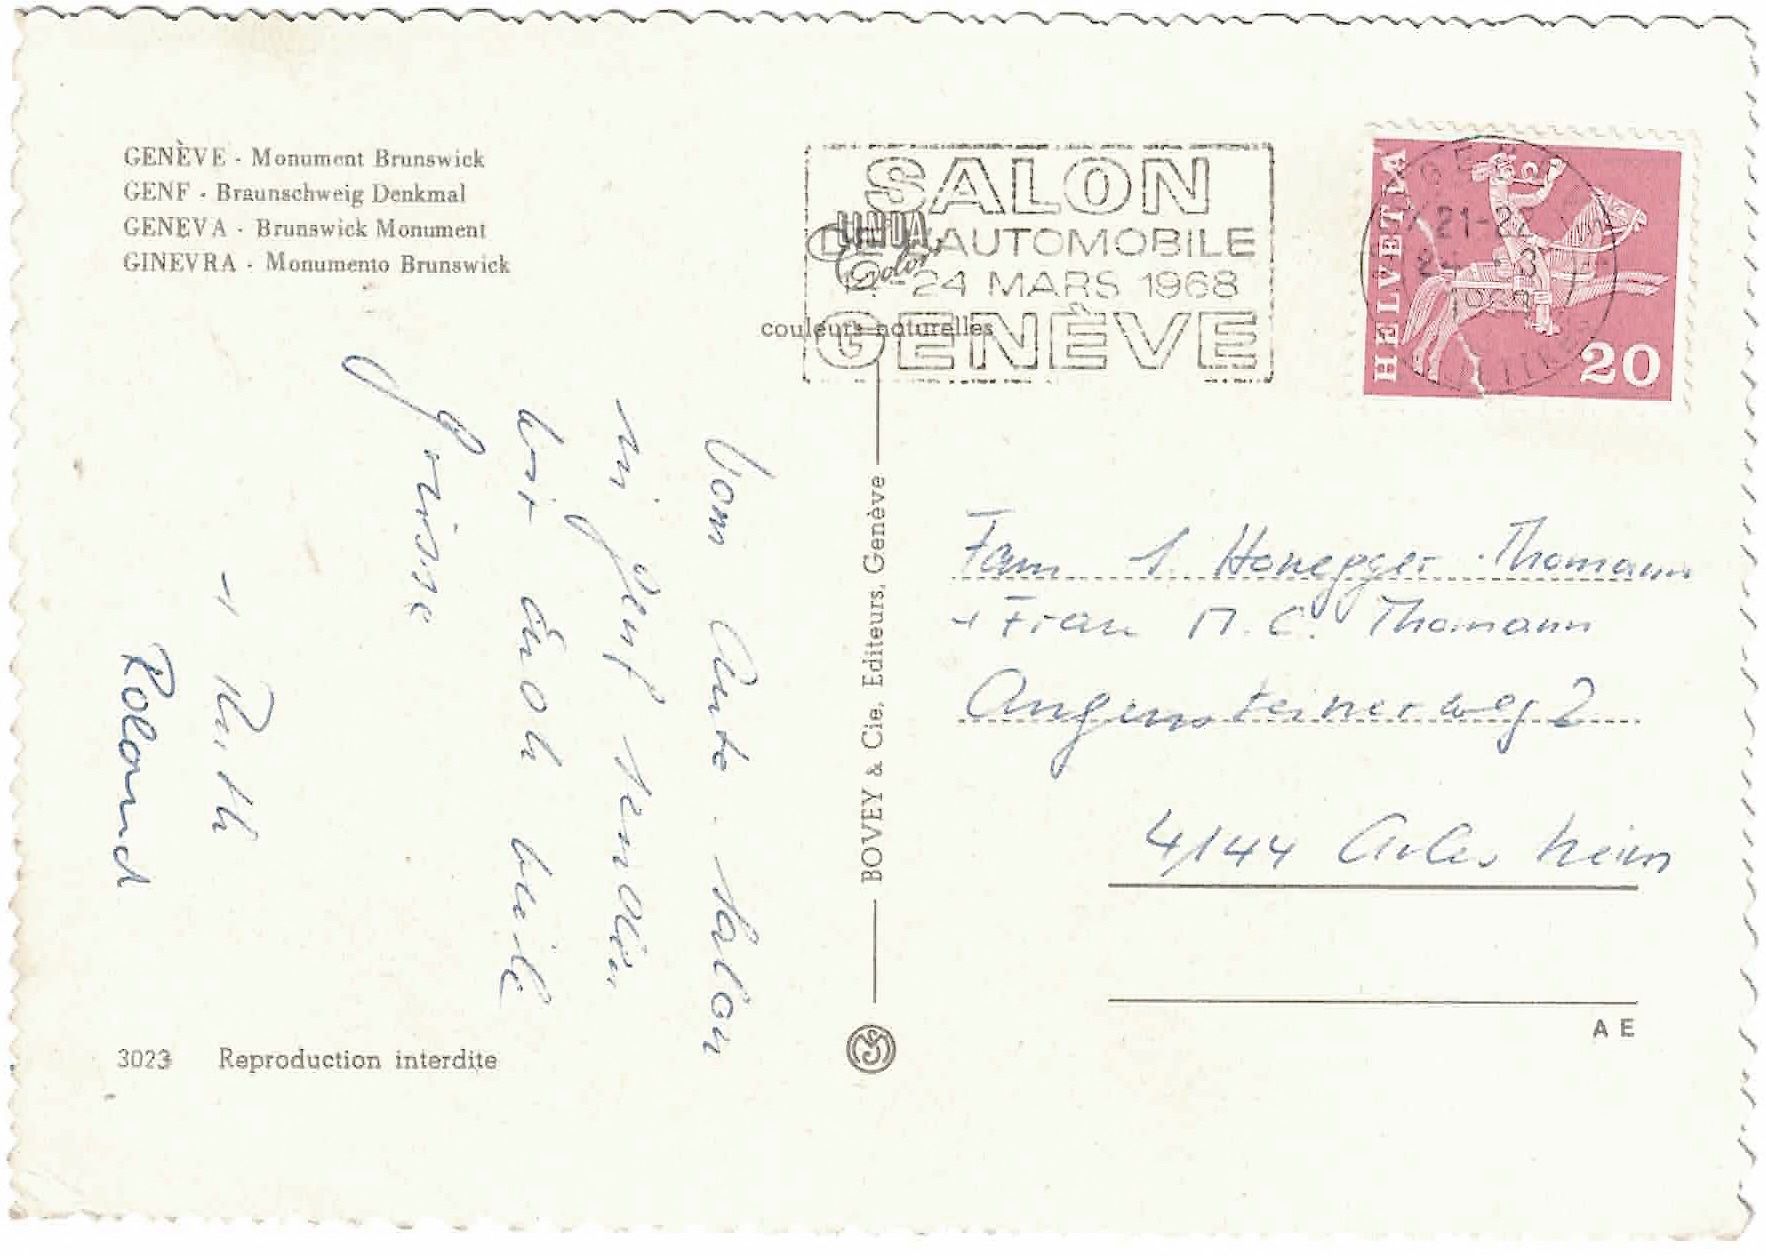 GENÈVE - Monument Brunswick
GENF - Braunschweig Denkmal
GENEVA - Brunswick Monument
GINEVRA - Monumento Brunswick
SALON
DE L'AUTOMOBILE
-24 MARS 1968
GENÈVE
couleurs naturelles
HELVETIA
20
21-22
Vom Auto-Salon
in Genf senden
wir Euch viele
Grüsse
+ Ruth
Roland
BOVEY & Cie, Editeurs, Genève
Fam Honegger-Thomann
+ Frau M. C. Thomann
Angensteinerweg 2
4144 Arlesheim
3023 Reproduction interdite
A E